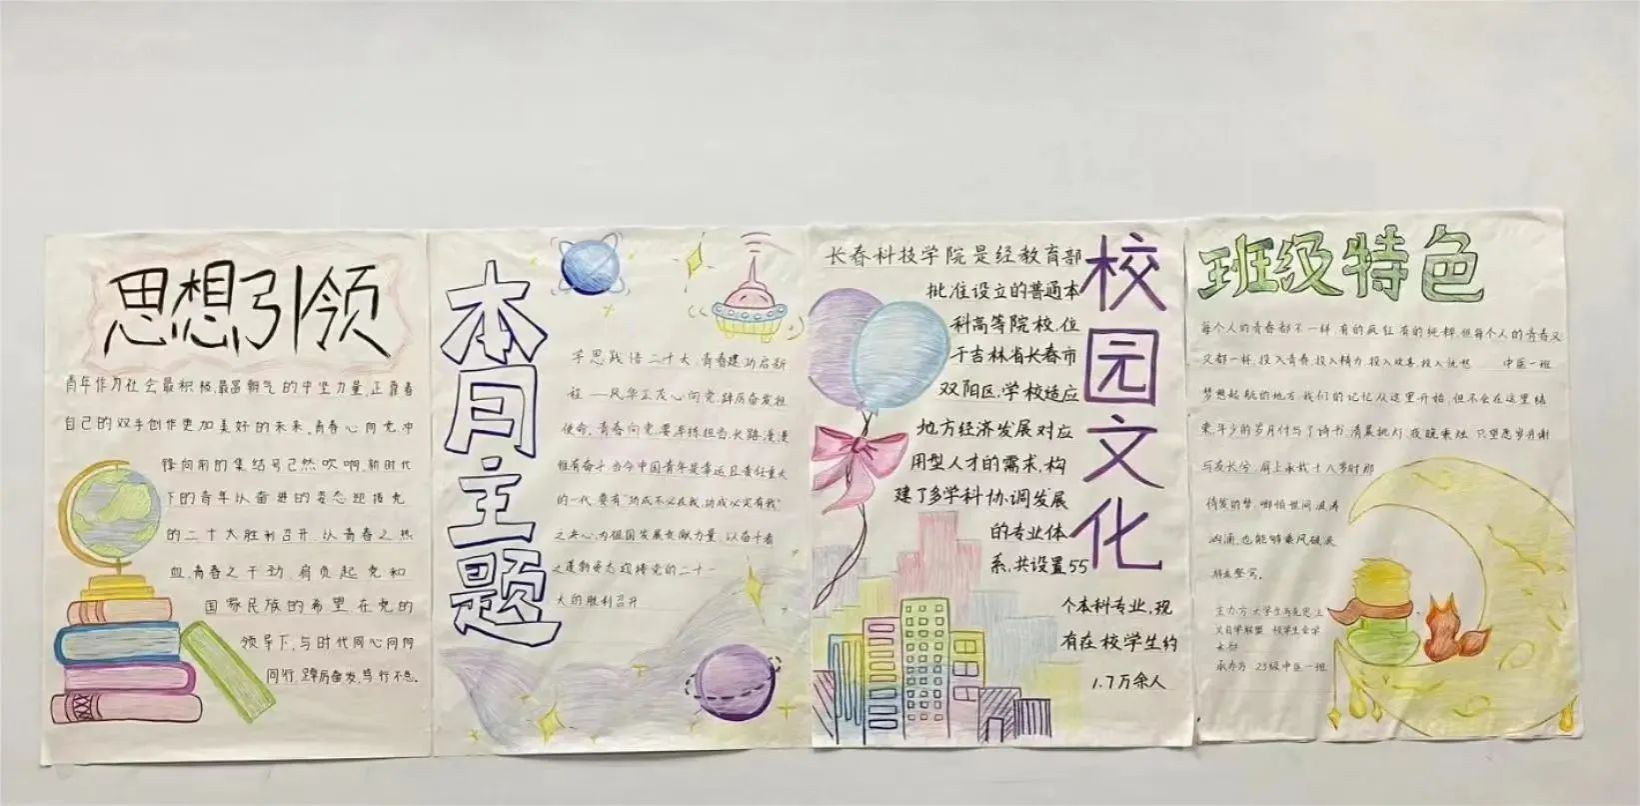 思想引领
青年作为社会最积极、最富朝气的中坚力量,正靠着
自己的双手创作更加美好的未来。青春心向党,冲
锋向前的集结号已然吹响,新时代
下的青年以奋进的姿态迎接党
的二十大胜利召开,以青春之热
血,青春之干劲,肩负起党和
国家民族的希望在党的
领导下,与时代同心同向
同行,踔厉奋发,笃行不怠。
本月主题
学思践悟二十大,青春建功启新
程——风华正茂心向党,踔厉奋发担
使命。青春向党,要库练担当,长路漫漫
惟有奋斗,当今中国青年是幸运且责任重大
的一代,要有“功成不必在我,功成必定有我”
之决心,为祖国发展贡献力量,以奋斗者
之蓬勃姿态迎接党的二十一
大的胜利召开
校园文化
长春科技学院是经教育部
批准设立的普通本
科高等院校,位
于吉林省长春市
双阳区,学校适应
地方经济发展对应
用型人才的需求,构
建了多学科协调发展
的专业体
系,共设置55
个本科专业,现
有在校学生约
1.7万余人
班级特色
每个人的青春都不一样,有的疯狂,有的纯粹,但每个人的青春又
又都一样,投入青春,投入精力,投入欢喜,投入忧愁 中医一班
梦想起航的地方,我们的记忆从这里开始,但不会在这里结
束,年少的岁月付与了诗书,清晨挑灯,夜晚秉烛,只望愿岁月谢
与友长兮,肩上承载十八岁时那
待发的梦,哪怕世间浪涛
汹涌,也能够乘风破浪
主办方:大学生马克思主
义自学联盟 校学生会学
承办方:23级中医一班